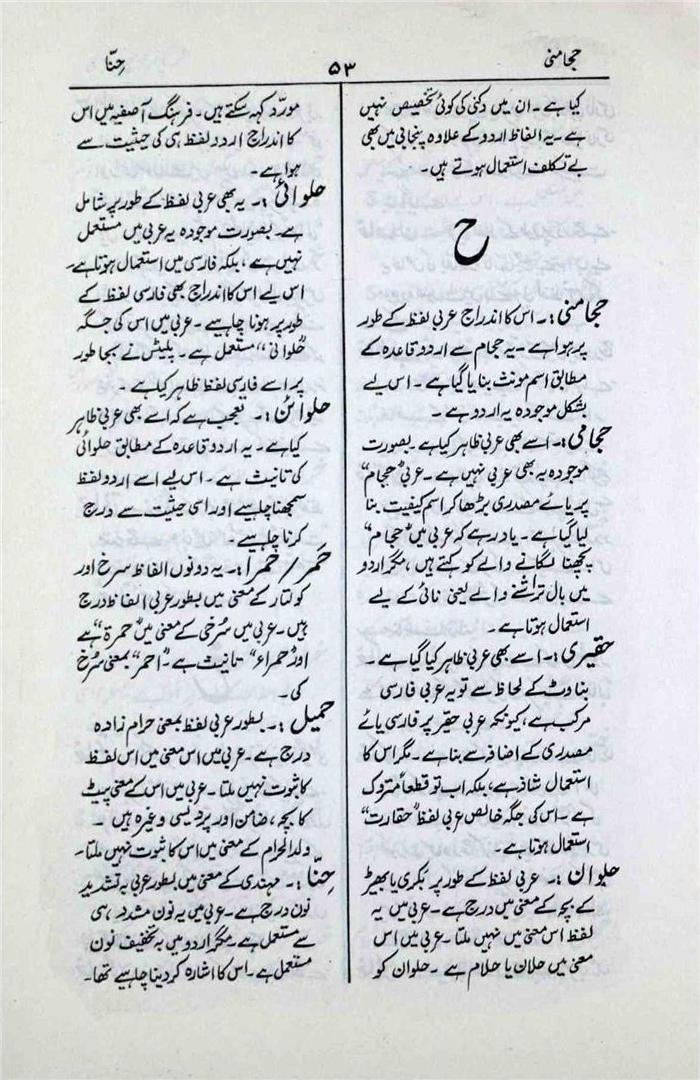 حجامنی
۵۳
حِنّا
کیا ہے۔ ان میں دکنی کی کوئی تخصیص نہیں
ہے۔ یہ الفاظ اردو کے علاوہ پنجابی میں بھی
بے تکلف استعمال ہوتے ہیں۔
ح
حجامنی :۔ اس کا اندراج عربی لفظ کے طور
پر ہوا ہے۔ یہ حجام سے اردو قاعدہ کے
مطابق اسم مونث بنایا گیا ہے۔ اس لیے
بشکل موجودہ یہ اردو ہے۔
حجامی :۔ اسے بھی عربی ظاہر کیا ہے۔ بصورت
موجودہ یہ بھی عربی نہیں ہے۔ عربی "حجام"
پر یائے مصدری بڑھا کر اسم کیفیت بنا
لیا گیا ہے۔ یاد رہے کہ عربی میں "حجام"
پچھنا لگانے والے کو کہتے ہیں، مگر اردو
میں بال تراشنے والے یعنی نائی کے لیے
استعمال ہوتا ہے۔
حقیری :۔ اسے بھی عربی ظاہر کیا گیا ہے۔
بناوٹ کے لحاظ سے تو یہ عربی فارسی
مرکب ہے، کیونکہ عربی حقیر پر فارسی یائے
مصدری کے اضافہ سے بنا ہے۔ مگر اس کا
استعمال شاذ ہے، بلکہ اب تو قطعاً متروک
ہے۔ اس کی جگہ خالص عربی لفظ "حقارت"
استعمال ہوتا ہے۔
حلوان :۔ عربی لفظ کے طور پر بکری یا بھیڑ
کے بچہ کے معنی میں درج ہے۔ عربی میں یہ
لفظ اس معنی میں نہیں ملتا۔ عربی میں اس
معنی میں حلان یا حلام ہے۔ حلوان کو
مورّد کہہ سکتے ہیں۔ فرہنگ آصفیہ میں اس
کا اندراج اردو لفظ ہی کی حیثیت سے
ہوا ہے۔
حلوائی :۔ یہ بھی عربی لفظ کے طور پر شامل
ہے۔ بصورت موجودہ یہ عربی میں مستعمل
نہیں ہے، بلکہ فارسی میں استعمال ہوتا ہے۔
اس لیے اس کا اندراج بھی فارسی لفظ کے
طور پر ہونا چاہیے۔ عربی میں اس کی جگہ
"حُلوانی" مستعمل ہے۔ پلیٹس نے بجا طور
پر اسے فارسی لفظ ظاہر کیا ہے۔
حلوائن :۔ تعجب ہے کہ اسے بھی عربی ظاہر
کیا ہے۔ یہ اردو قاعدہ کے مطابق حلوائی
کی تانیث ہے۔ اس لیے اسے اردو لفظ
سمجھنا چاہیے اور اسی حیثیت سے درج
کرنا چاہیے۔
حَمر/حمرا :۔ یہ دونوں الفاظ سرخ اور
کولتار کے معنی میں بطور عربی الفاظ درج
ہیں۔ عربی میں سُرخی کے معنی میں "حمرۃ" ہے
اور "حمراء" تانیث ہے۔ "احمر" بمعنی سُرخ
کی۔
حمیل :۔ بطور عربی لفظ بمعنی حرام زادہ
درج ہے۔ عربی میں اس معنی میں اس لفظ
کا ثبوت نہیں ملتا۔ عربی میں اس کے معنی پیٹ
کا بچہ، ضامن اور پردیسی وغیرہ ہیں۔
ولد الحرام کے معنی میں اس کا ثبوت نہیں ملتا۔
حِنّا :۔ مہندی کے معنی میں بطور عربی بہ تشدید
نون درج ہے۔ عربی میں یہ نون مشدد ہی
سے مستعمل ہے۔ مگر اردو میں بہ تخفیف نون
مستعمل ہے۔ اس کا اشارہ کر دینا چاہیے تھا۔